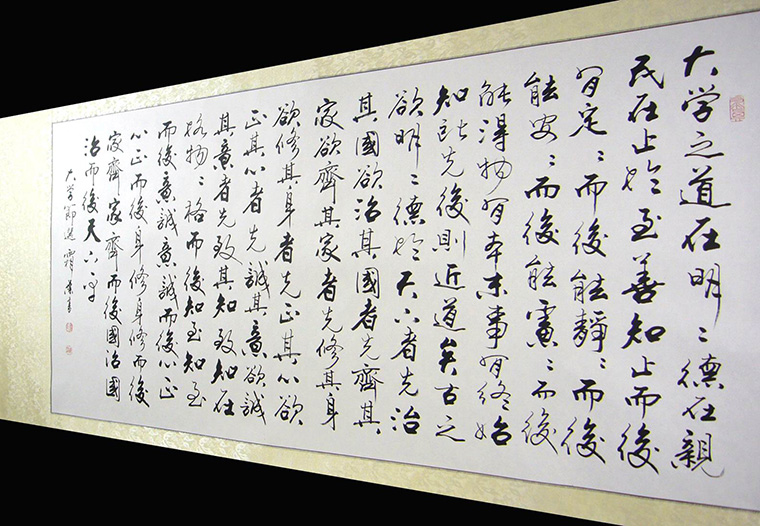 大学之道在明〻德在親
民在止於至善知止而後
有定〻而後能靜〻而後
能安〻而後能慮〻而後
能得物有本末事有終始
知所先後則近道矣古之
欲明〻德於天下者先治
其國欲治其國者先齊其
家欲齊其家者先修其身
欲修其身者先正其心欲
正其心者先誠其意欲誠
其意者先致其知致知在
格物〻格而後知至知至
而後意誠意誠而後心正
心正而後身修身修而後
家齊家齊而後國治國
治而後天下平
大学節選